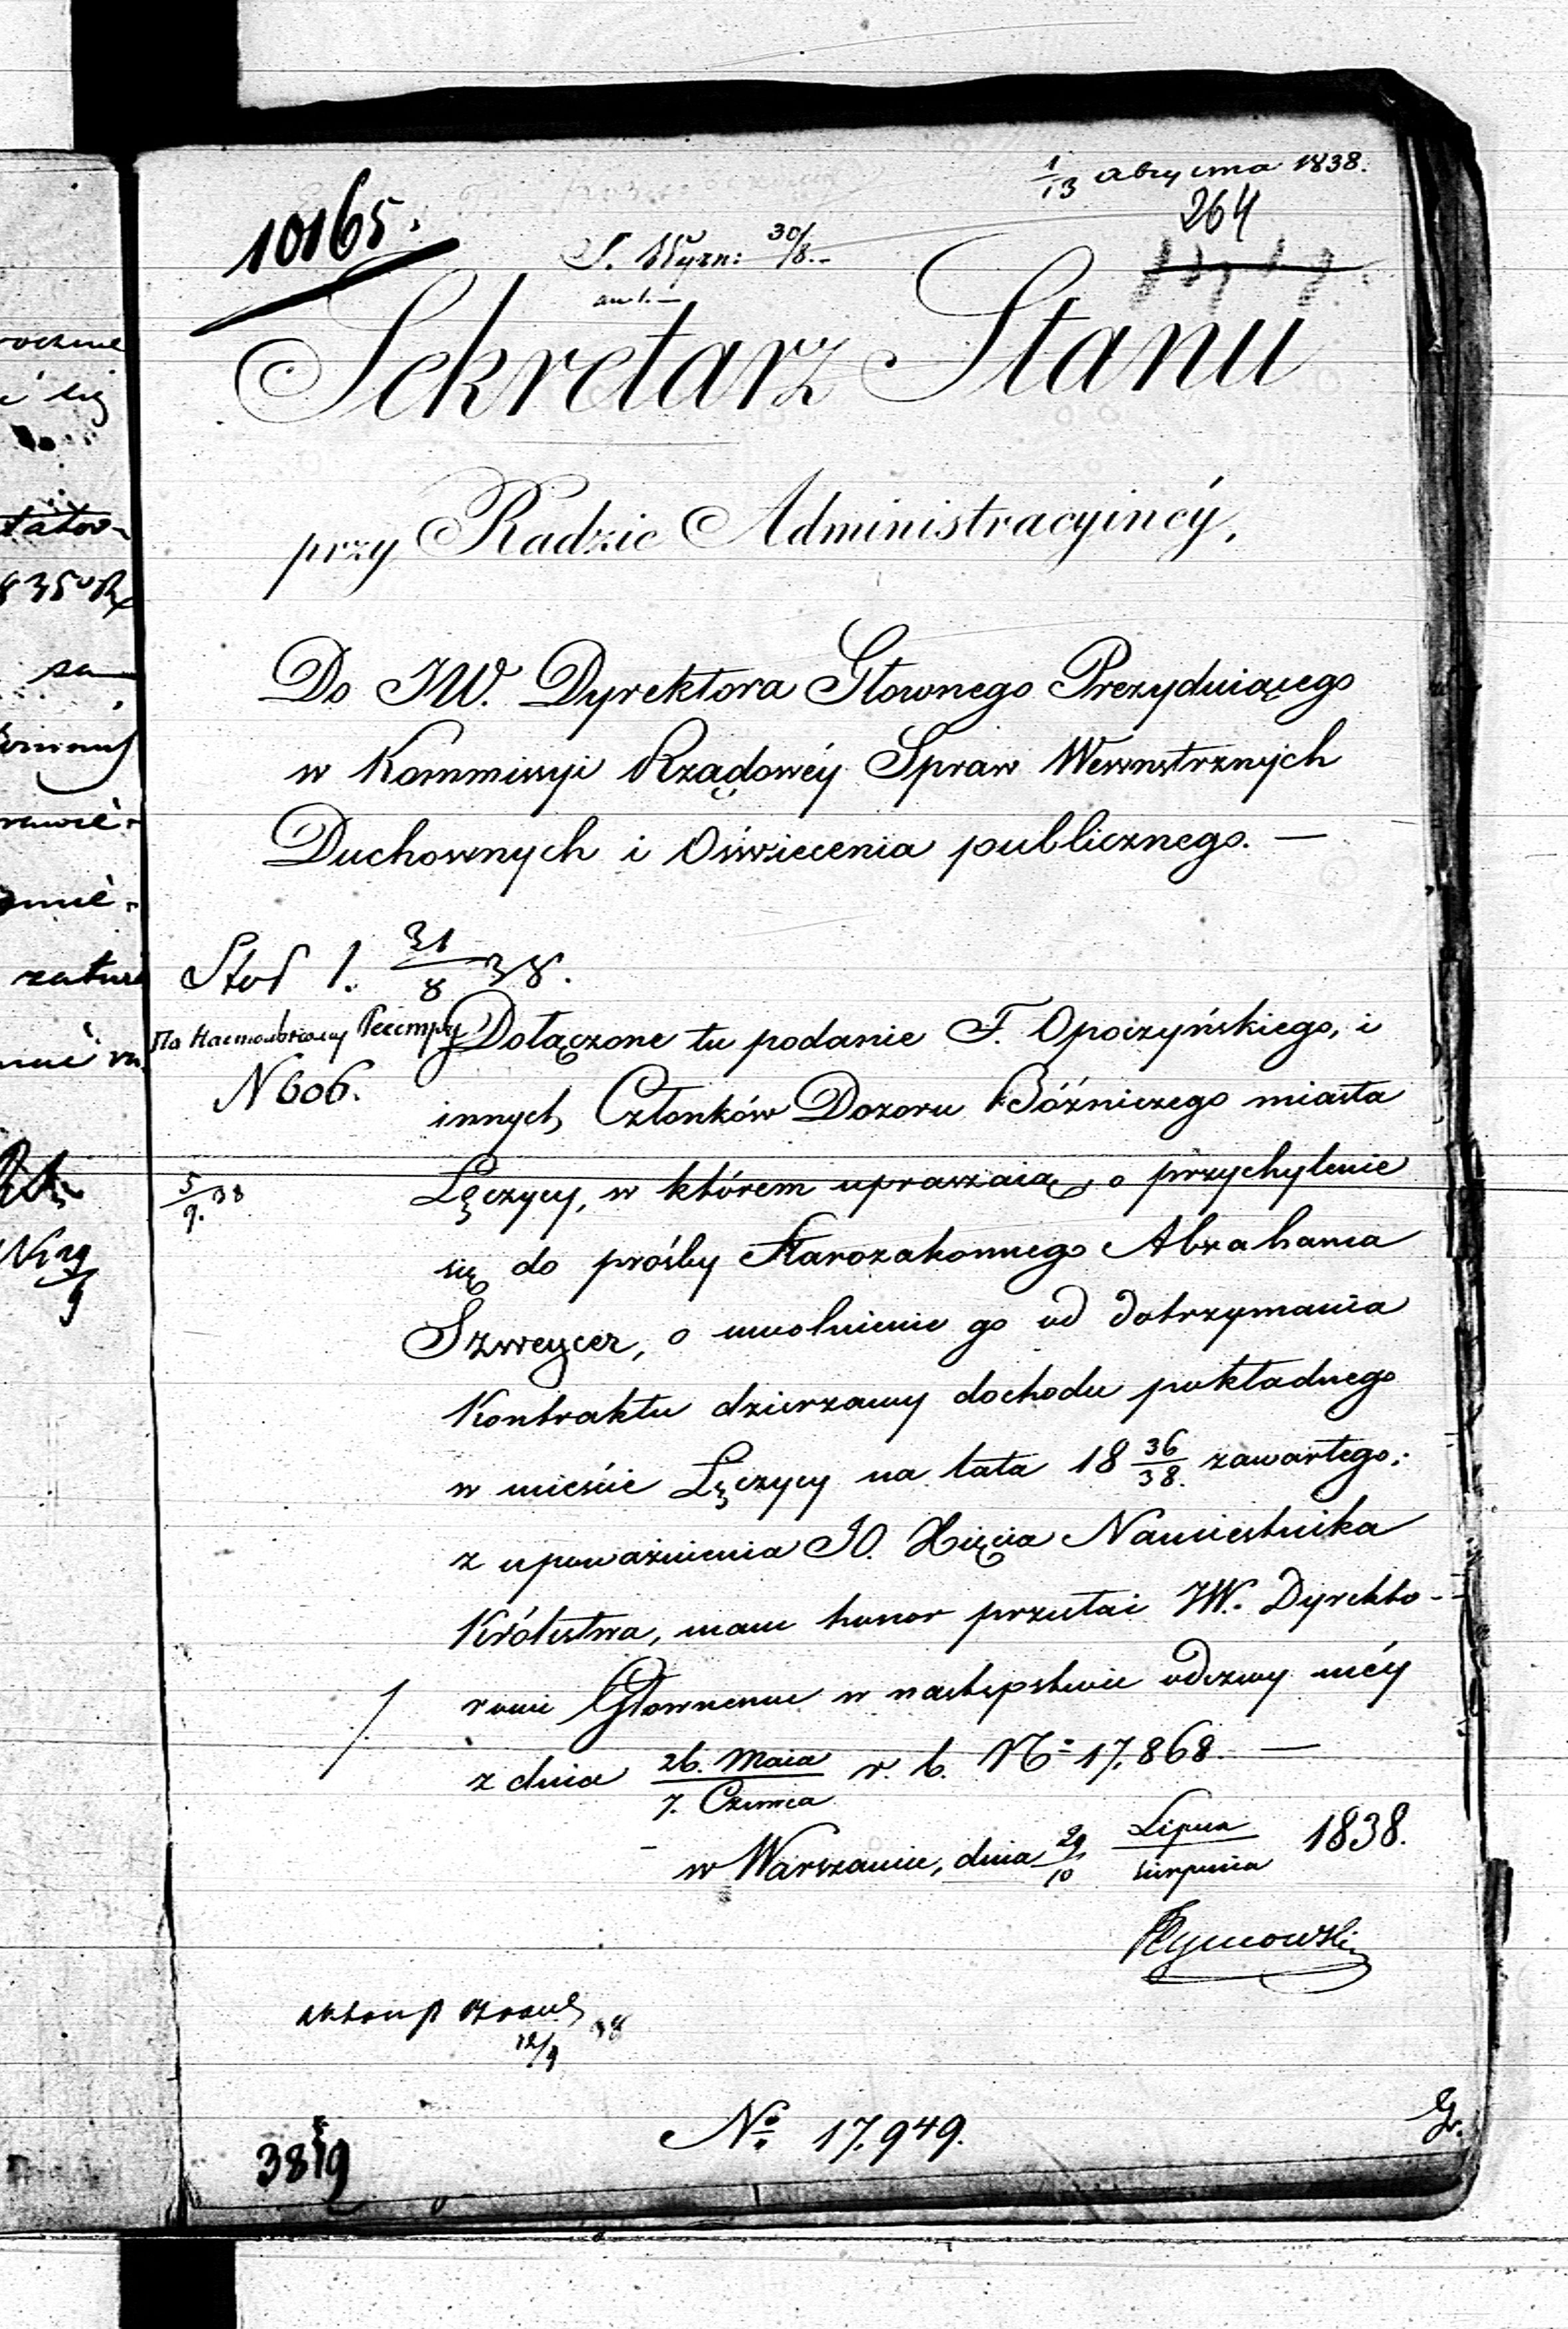 1/13 августа 1838.
10165.
264
S. Wyzn: 30/8.
Sekretarz Stanu
przy Radzie Administracyinéy,
Do JW. Dyrektora Głownego Prezyduiącego
w Kommissyi Rządowéy Spraw Wewnętrznych
Duchownych i Oświecenia publicznego. —
31/8 38.
По Настольному Реестру
N 606.
5/9. 38
Dołączone tu podanie F. Opoczyńskiego, i
innych Członków Dozoru Bóźniczego miasta
Łęczycy, w którem upraszaią o przychylenie
się do prośby Starozakonnego Abrahama
Szweycer, o uwolnienie go od dotrzymania
Kontraktu dzierzawy dochodu pokładnego
w mieście Łęczycy na lata 18 36/38. zawartego;
z upoważnienia JO. Xięcia Namiestnika
Królestwa, mam honor przesłać JW. Dyrekto-
rowi Głownemu w następstwie odezwy méy
z dnia 26. Maia / 7. Czerwca r. b. No 17,868. —
w Warszawie, dnia 29/10 Lipca / Sierpnia 1838.
Tymowski
12/9 38
No. 17,949.
3819